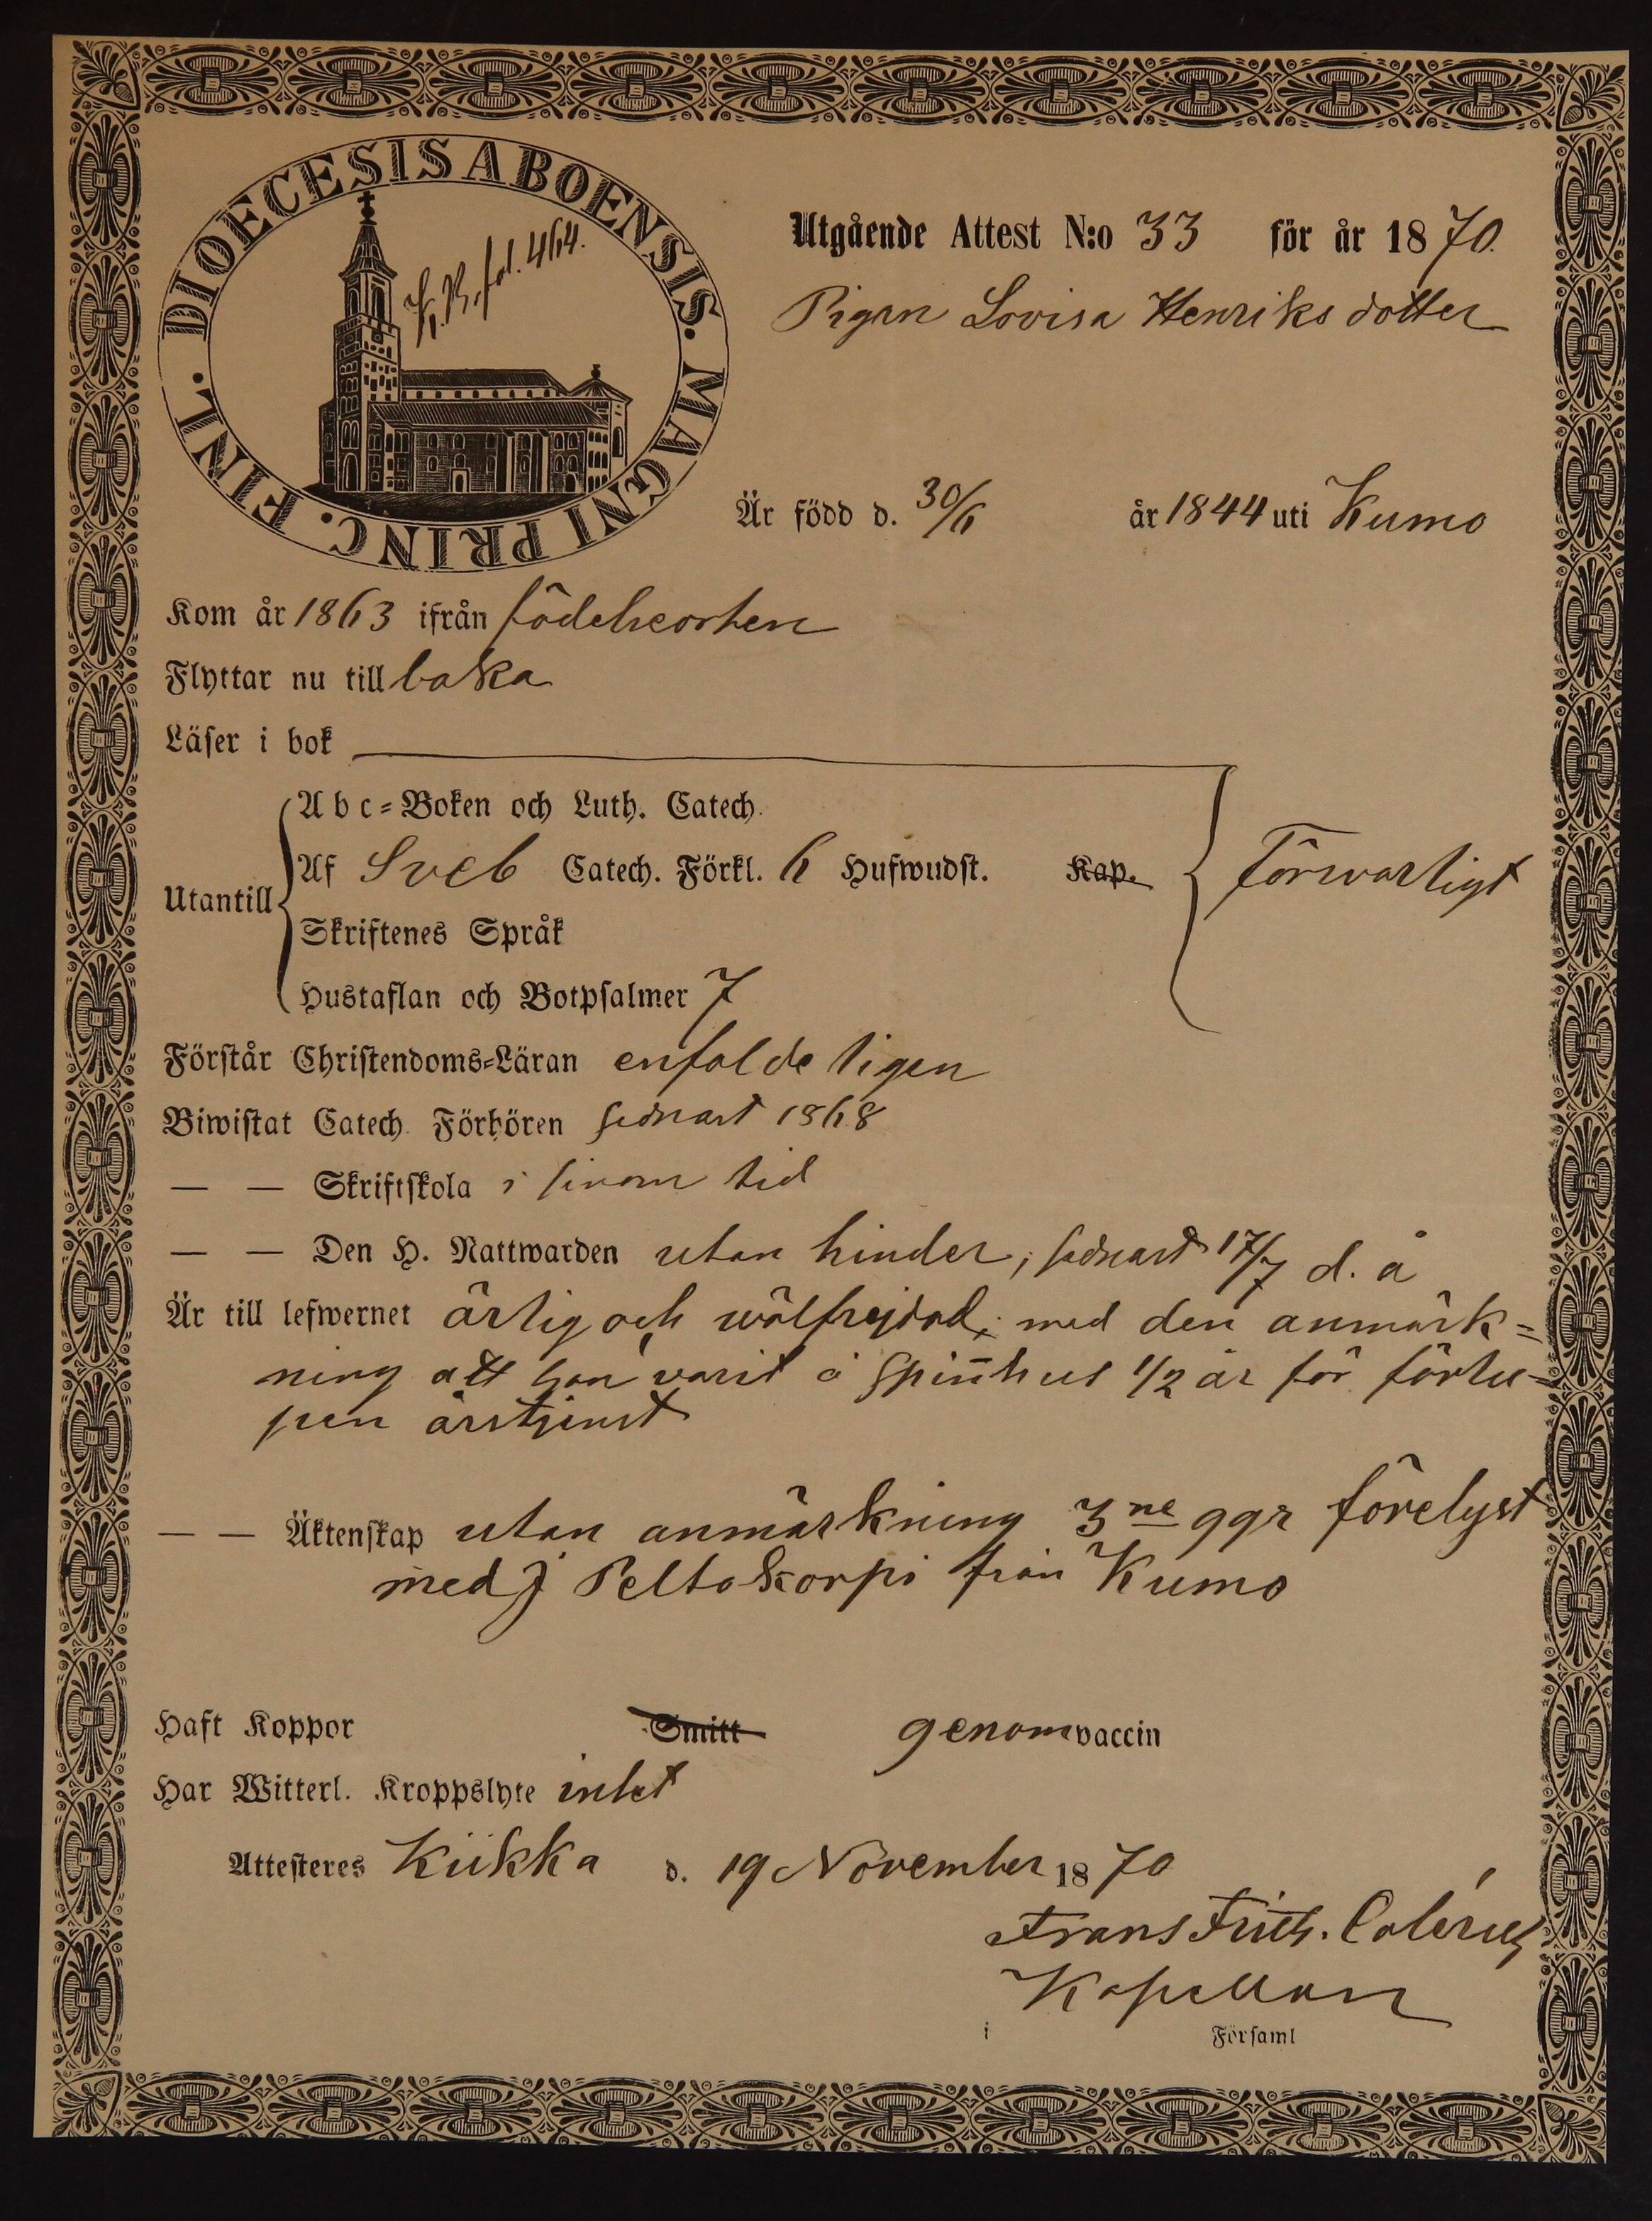 DIOECESIS ABOENSIS. MAGNI PRINC. FINL.
K.B. fol. 464.
Utgående Attest N:o 33 för år 1870.
Pigan Lovisa Henriksdotter
Är född d. 30/6 år 1844 uti Kumo
Kom år 1863 ifrån födelseorten
Flyttar nu till baka
Läser i bok
Abc-Boken och Luth. Catech.
Af Sveb Catech. Förkl. 6 Hufwudst. Kap.
Förswarligt
Utantill
Skriftenes Språk
Hustaflan och Botpsalmer 7
Förstår Christendoms-Läran enfaldeligen
Biwistat Catech. Förhören sednast 1868
— — Skriftskola i sinom tid
— — Den H. Nattwarden utan hinder, sednast 17/7 d. å
Är till lefwernet ärlig och wälfrejdad, med den anmärk=
ning att hon varit å Spinnhus 1/2 år för förlu=
pen årstjenst
— — Äktenskap utan anmärkning 3ne ggr förelyst
med J Peltokorpi från Kumo
Haft Koppor Smitt genom vaccin
Har Witterl. Kroppslyte intet
Attesteres Kiikka d. 19 November 1870
Frans Frith. Colérus
Kapellan
i Församl